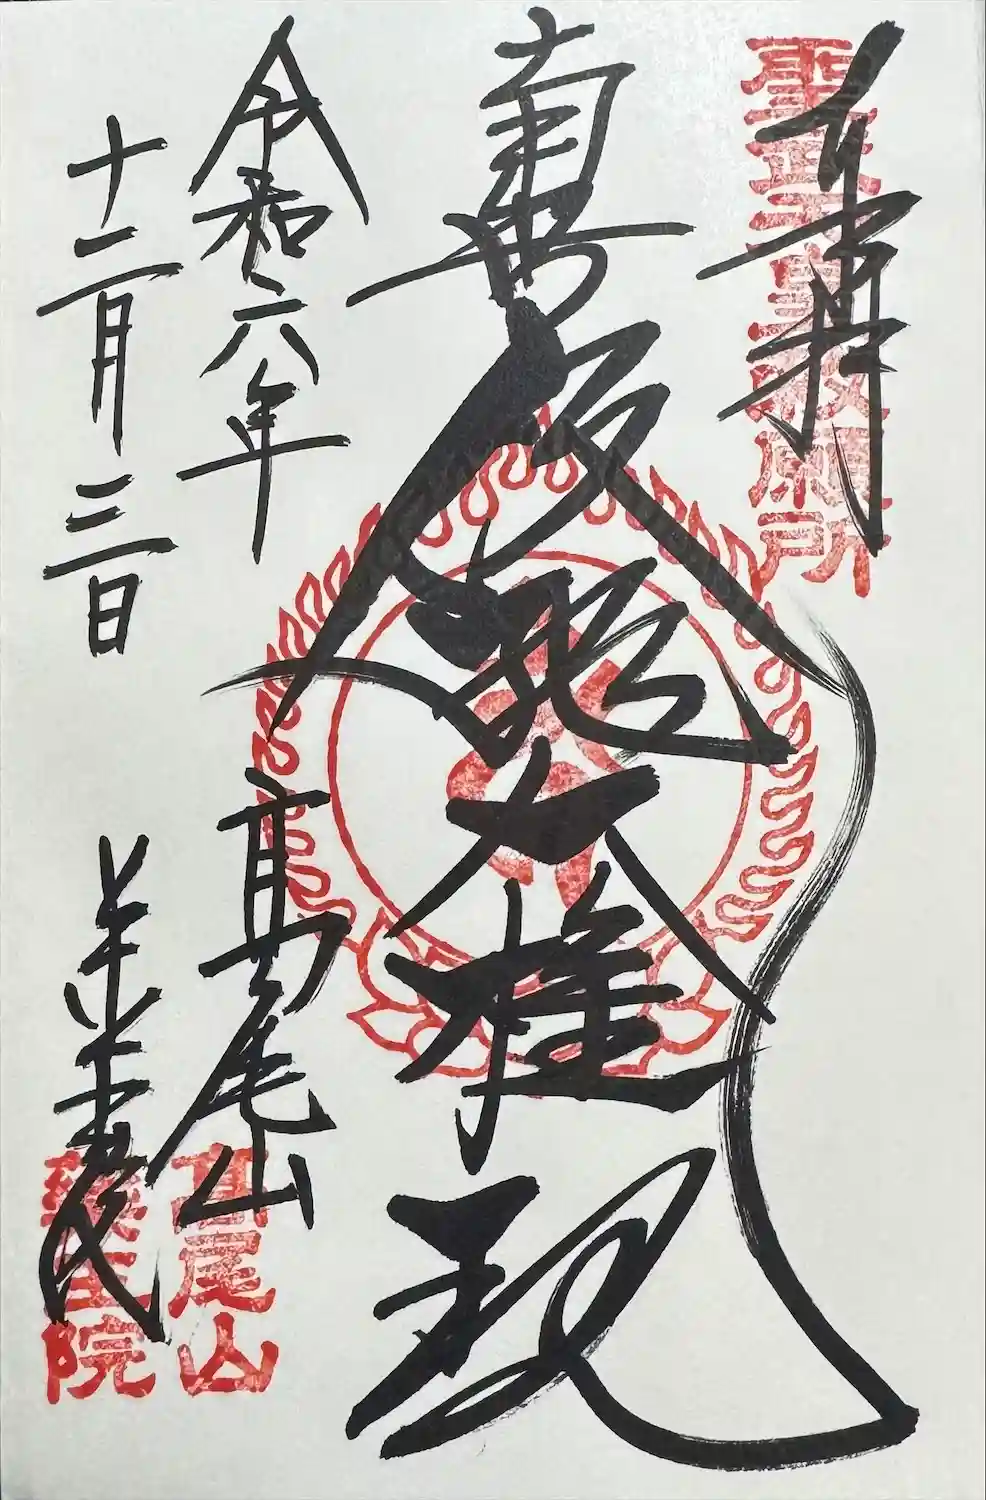 奉拝
聖武天皇敕願所
飯縄大権現
令和六年
十二月三日
高尾山
高尾山
薬王院
薬王院